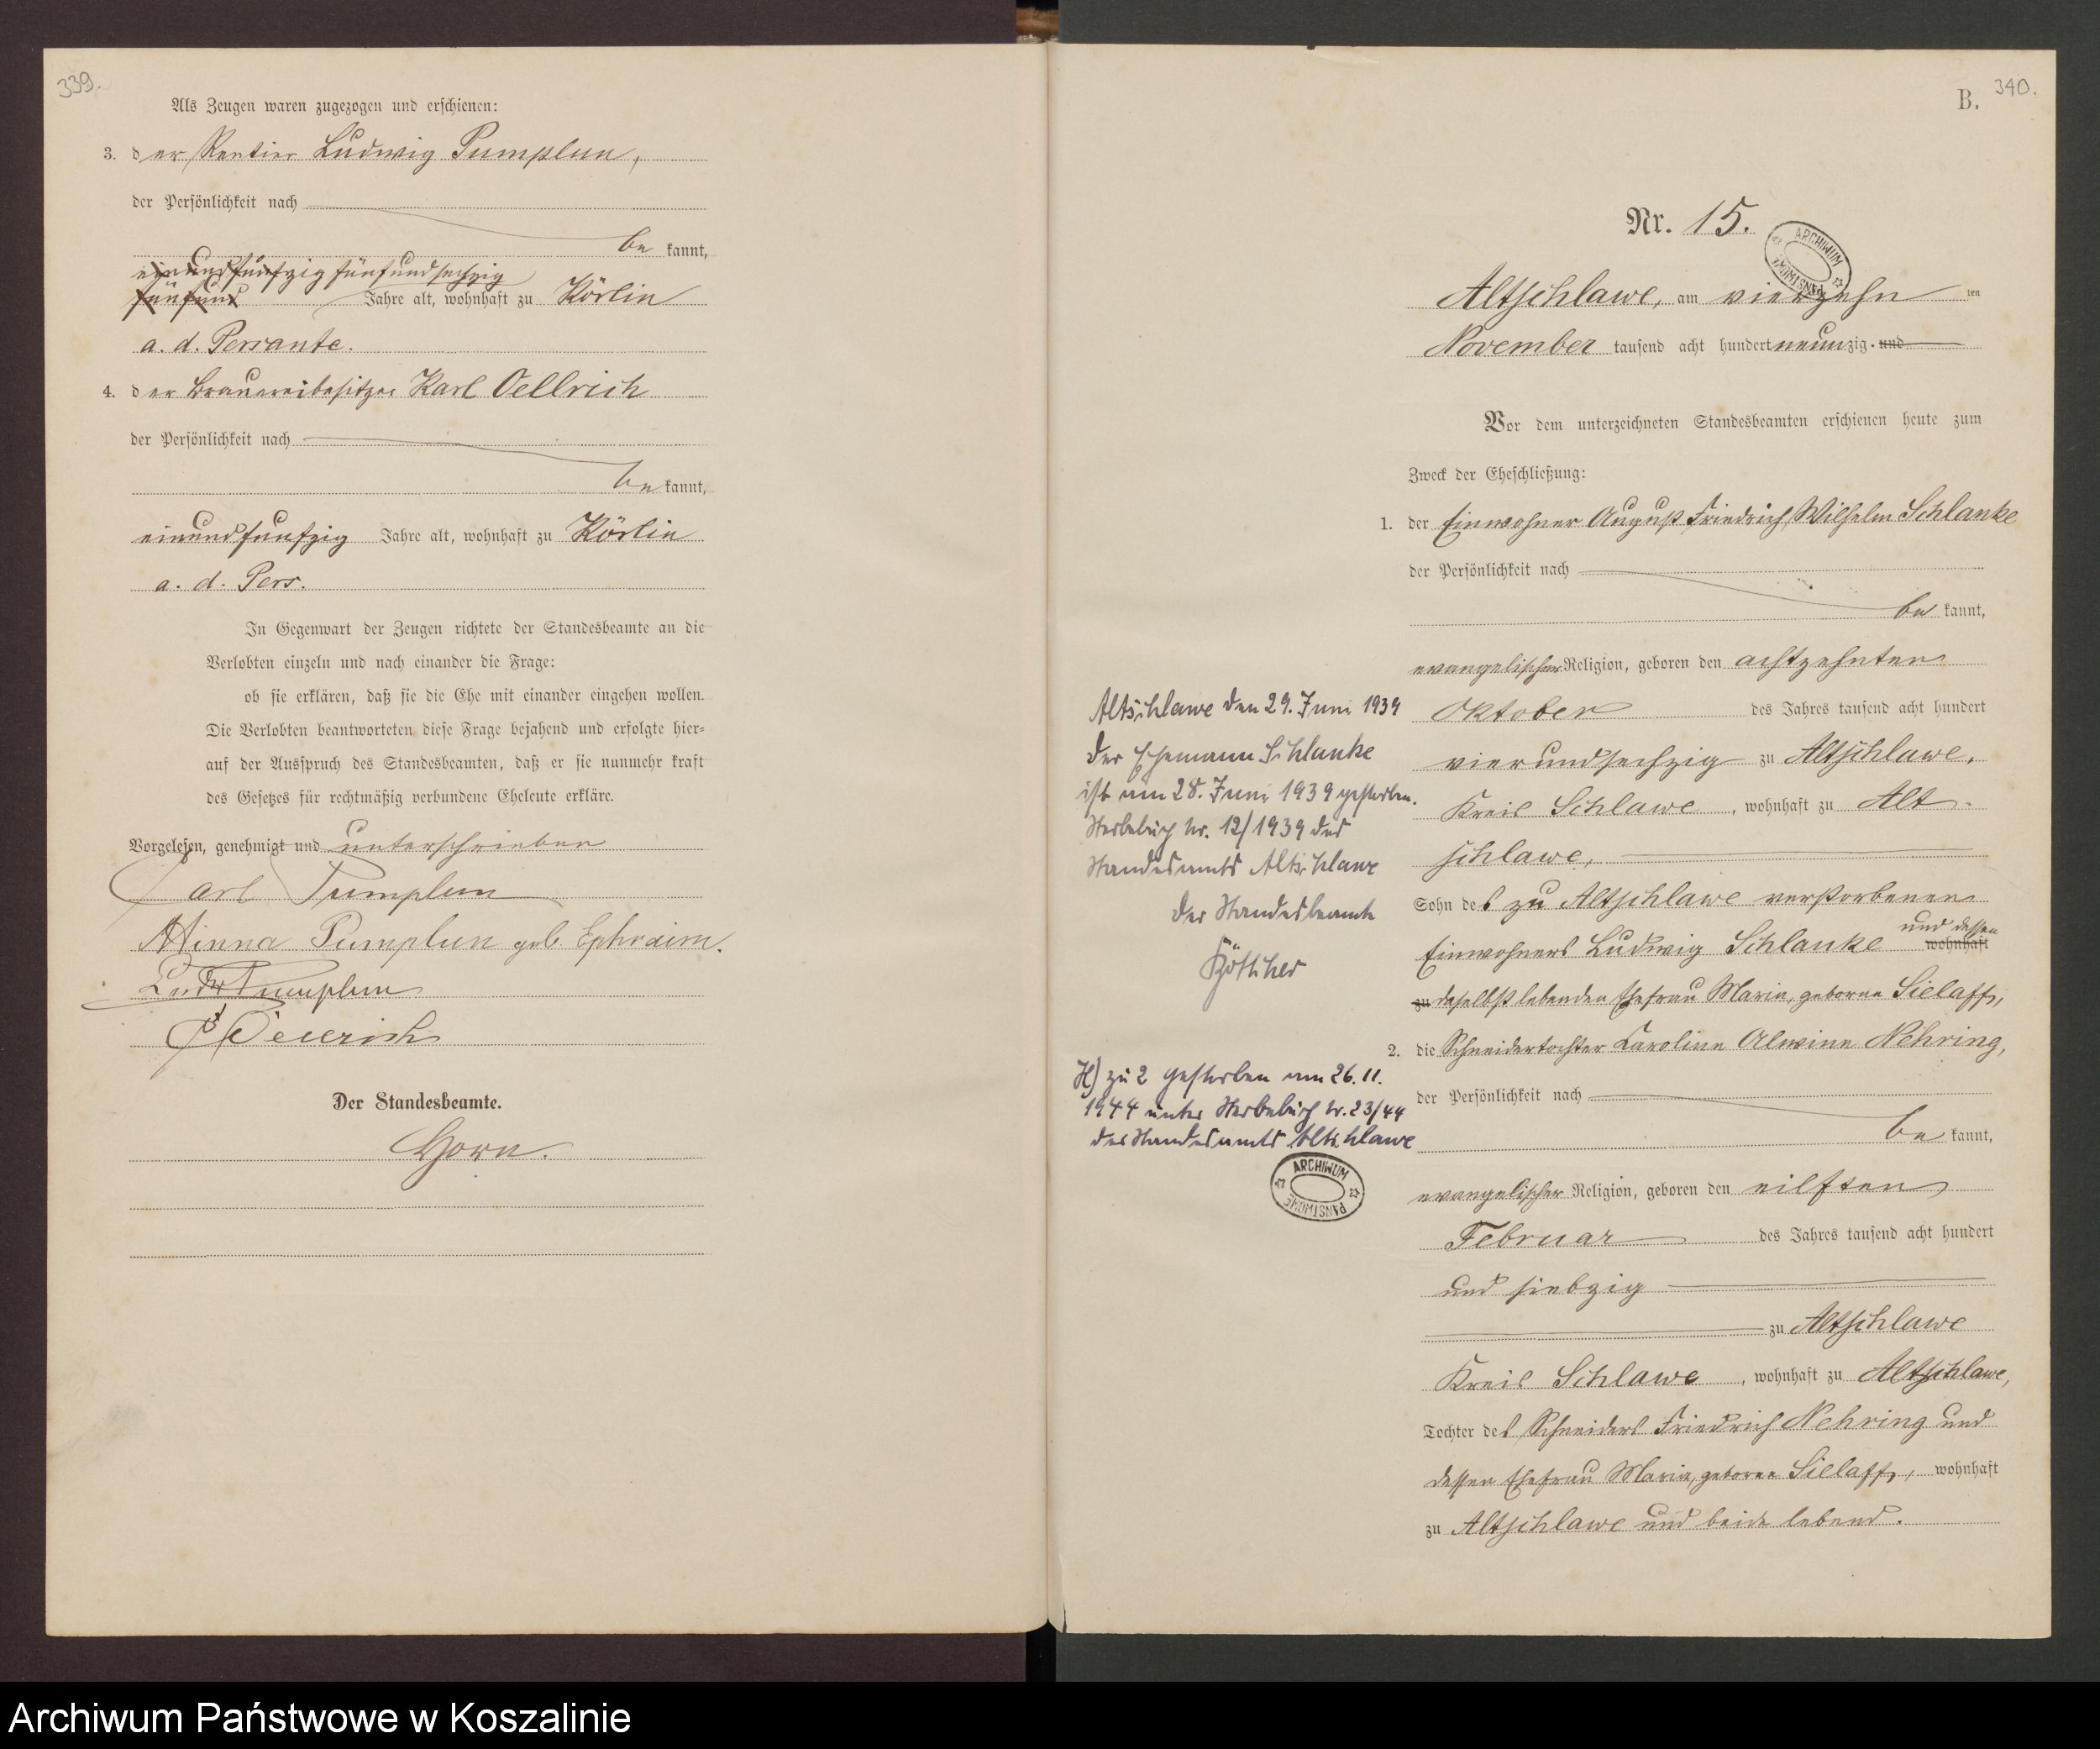 339.
Als Zeugen waren zugezogen und erschienen:
3. der Rentier Ludwig Pumplun,
der Persönlichkeit nach
be kannt,
einundfünfzig fünfundsechzig
fünfund Jahre alt, wohnhaft zu Körlin
a. d. Persante.
4. der Brauereibesitzer Karl Oellrich
der Persönlichkeit nach
be kannt,
einundfünfzig Jahre alt, wohnhaft zu Körlin
a. d. Pers.
In Gegenwart der Zeugen richtete der Standesbeamte an die
Verlobten einzeln und nach einander die Frage:
ob sie erklären, daß sie die Ehe mit einander eingehen wollen.
Die Verlobten beantworteten diese Frage bejahend und erfolgte hier-
auf der Ausspruch des Standesbeamten, daß er sie nunmehr kraft
des Gesetzes für rechtmäßig verbundene Eheleute erkläre.
Vorgelesen, genehmigt und unterschrieben
Carl Pumplun
Minna Pumplun geb. Ephraim.
Ludw Pumplun
Oellrich
Der Standesbeamte.
Horn.
B. 340.
Nr. 15.
ARCHIWUM PAŃSTWOWE
Altschlawe, am vierzehn ten
November tausend acht hundert neunzig. und
Vor dem unterzeichneten Standesbeamten erschienen heute zum
Zweck der Eheschließung:
1. der Einwohner August Friedrich Wilhelm Schlanke
der Persönlichkeit nach
be kannt,
evangelischer Religion, geboren den achtzehnten
Oktober des Jahres tausend acht hundert
vierundsechzig zu Altschlawe,
Kreis Schlawe, wohnhaft zu Alt-
schlawe,
Sohn des zu Altschlawe verstorbenen
Einwohners Ludwig Schlanke und dessen wohnhaft
zu daselbst lebenden Ehefrau Marie, geborne Sielaff,
2. die Schneidertochter Karoline Alwine Nehring,
der Persönlichkeit nach
be kannt,
evangelischer Religion, geboren den eilften
Februar des Jahres tausend acht hundert
und siebzig
zu Altschlawe
Kreis Schlawe, wohnhaft zu Altschlawe,
Tochter des Schneiders Friedrich Nehring und
dessen Ehefrau Marie, geborne Sielaff, wohnhaft
zu Altschlawe und beide lebend.
Altschlawe den 29. Juni 1939
Der Ehemann Schlanke
ist am 28. Juni 1939 gestorben.
Sterbebuch Nr. 12/1939 des
Standesamts Altschlawe
Der Standesbeamte
Böttcher
H) zu 2 gestorben am 26.11.
1944 unter Sterbebuch Nr. 23/44
des Standesamts Altschlawe
ARCHIWUM PAŃSTWOWE
Archiwum Państwowe w Koszalinie